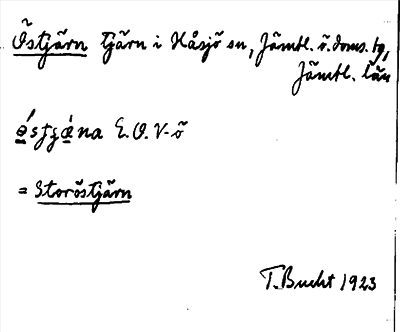 Östjärn tjärn i Håsjö sn, Jämtl. ö. doms. tg,
Jämtl. län
E. O. V-ö
= Storöstjärn
T. Bucht 1923